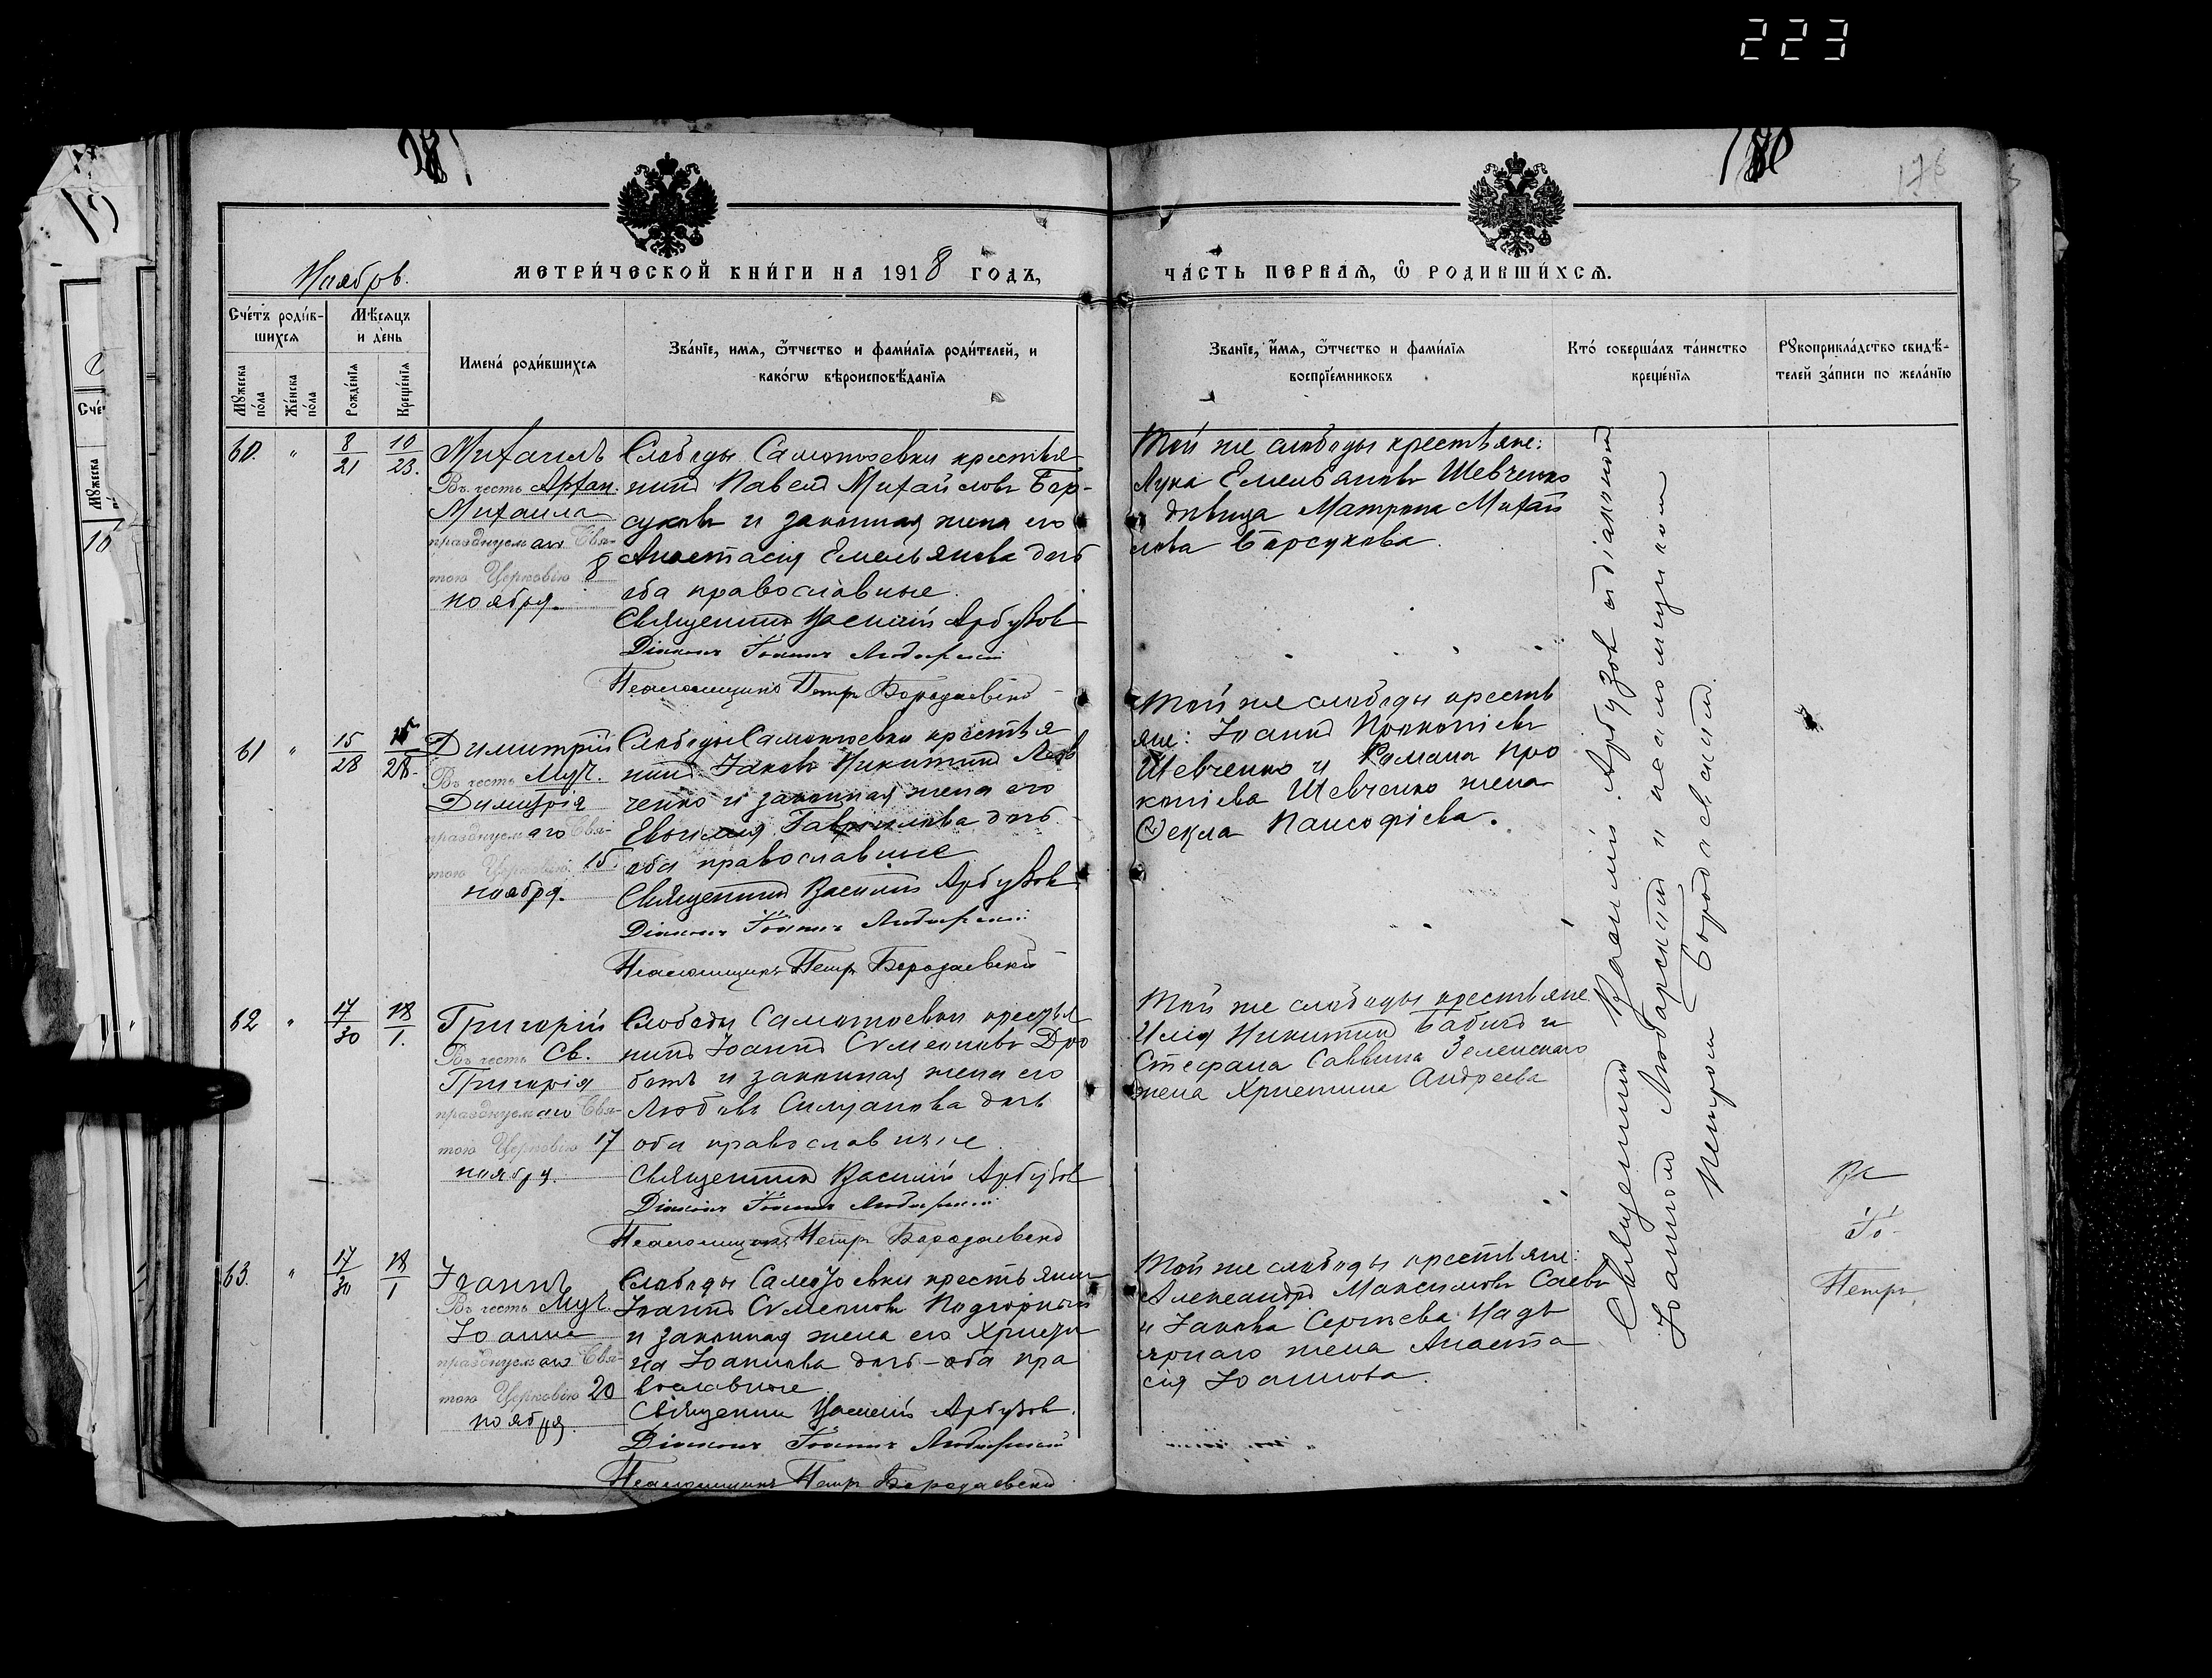 223
176
Ноябрь.
МЕТРИЧЕСКОЙ КНИГИ НА 1918 ГОДЪ,
ЧАСТЬ ПЕРВАЯ, Ѡ РОДИВШИХСЯ.
Счетъ родив-
шихся
Мѣсяцъ
и день
Мужеска
пола
Женска
пола
Рожденія
Крещенія
Имена родившихся
Званіе, имя, ѿчество и фамилія родителей, и
какогѡ вѣроисповѣданія
Званіе, имя, ѿчество и фамилія
воспріемниковъ
Кто совершалъ таинство
крещенія
Рукоприкладство свидѣ-
телей записи по желанію
60. " 8/21 10/23.
Михаилъ
Въ честь Архан.
Михаила
празднуемаго Свя-
тою Церковію 8
ноября.
Слободы Самотоевки крестья
нинъ Павелъ Михайловъ Бар-
суковъ и законная жена его
Анастасія Емельянова дочь
оба православные.
Священникъ Василій Арбузовъ
Діаконъ Іоаннъ Любарскій
Псаломщикъ Петръ Бородаевскій
Той же слободы крестьяне:
Лука Емельяновъ Шевченко
и дѣвица Матрона Михай
лова Барсукова.
61 " 15/28 15/28.
Димитрій
Въ честь Муч.
Димитрія
празднуемаго Свя-
тою Церковію 15.
ноября.
Слободы Самотоевки крестья
нинъ Іаковъ Никитинъ
ченко и законная жена его
Гавриилова дочь
оба православные
Священникъ Василій Арбузовъ
Діаконъ Іоаннъ Любарскій
Псаломщикъ Петръ Бородаевскій
Той же слободы кресть
яне: Іоаннъ Прокопіевъ
Шевченко и Романа Про
копіева Шевченко жена
Ѳекла Пансофіева.
62 " 17/30 18/1.
Григорій
Въ честь Св.
Григорія
празднуемаго Свя-
тою Церковію 17
ноября.
Слободы Самотоевки крестья
нинъ Іоаннъ Сѵмеоновъ Дро
ботъ и законная жена его
Любовь Силуанова дочь
оба православные.
Священникъ Василій Арбузовъ
Діаконъ Іоаннъ Любарскій
Псаломщикъ Петръ Бородаевскій
Той же слободы крестьяне
Илія Никитинъ Бабичъ и
Стефана Саввина Зеленскаго
жена Христина Андреева
63. " 17/30 18/1
Іоаннъ
Въ честь Муч.
Іоанна
празднуемаго Свя-
тою Церковію 20
ноября.
Слободы Самотоевки крестьянин
Іоаннъ Сѵмеоновъ Подгорный
и законная жена его Христи
на Іоаннова дочь - оба пра
вославные
Священникъ Василій Арбузовъ.
Діаконъ Іоаннъ Любарскій
Псаломщикъ Петръ Бородаевскій
Той же слободы крестьяне:
Александръ Максимовъ Саевъ
и Іакова Сергіева Надъ
ярнаго жена Анаста
сія Іоаннова.
Священникъ Василій Арбузовъ съ діакономъ
Іоанномъ Любарскимъ и псаломщикомъ
Петромъ Бородаевскимъ.
Іо-
Петръ